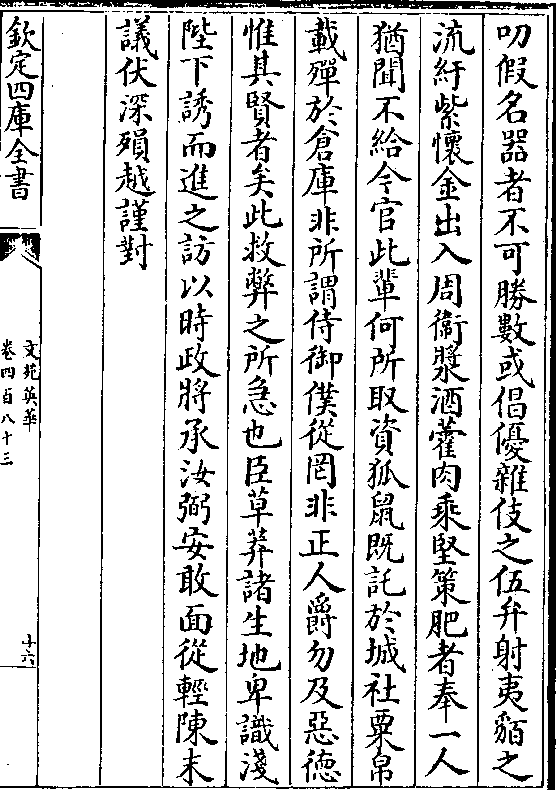 叨假名器者不可勝數或倡優雜伎之伍弁射夷貊之
流紆紫懷金出入周衛漿酒藿肉乘堅策肥者奉一人
猶聞不給今官此輩何所取資狐鼠既託於城社粟帛
載殫於倉庫非所謂侍御僕從罔非正人爵勿及惡德
惟其賢者矣此救弊之所急也臣草莽諸生地卑識淺
陛下誘而進之訪以時政將承汝弼安敢面從輕陳末
議伏深殞越謹對
欽定四庫全書
文苑英華
卷四百八十三
十六